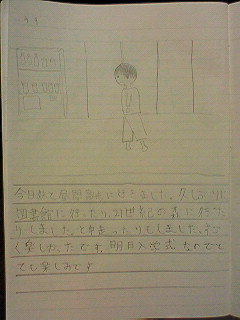 今日母と昼間高丸に行きました。久しぶりに
図書館に行ったり、21世紀の森に行った
りしました。とか走ったりもしました。すご
く楽しかったです。明日入学式なのでとて
ても楽しみです